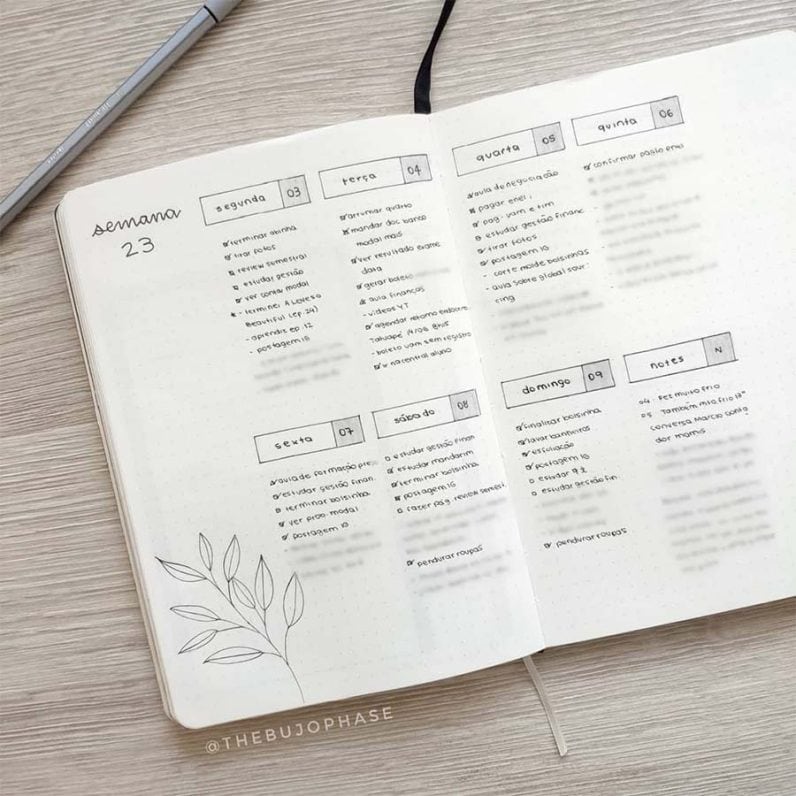 semana
23
segunda 03
terminar abinha
tirar fotos
review semestral
estudar gestão
ver conta modal
- terminei A Loveso
Beautiful (ep. 24)
- aprendiz ep. 12
- postagem IG
terça 04
arrumar quarto
mandar doc banco
modal mais
ver resultado exame
data
gerar boleto
aula finanças
- vídeos YT
agendar retorno
Tatuapé 14/06
- boleto vam sem registro
na central aluno
quarta 05
aula de negociação
pagar enel
pag. vam e tim
estudar gestão financ
tirar fotos
postagem IG
- corte molde bolsinhas
- aula sobre global sour
cing
quinta 06
confirmar pagto enel
sexta 07
aula de formação pre
estudar gestão finan.
terminar bolsinha
ver prob. modal
postagem IG
sábado 08
estudar gestão finan
estudar mandarim
terminar bolsinha
postagem IG
fazer pag. review semest
pendurar roupas
domingo 09
finalizar bolsinha
lavar banheiros
esfoliação
postagem IG
estudar
estudar gestão fin
pendurar roupas
notes N
04. Fez muito frio
05 Também mto frio
conversa Marcio conta
dor mamis
@THEBUJOPHASE